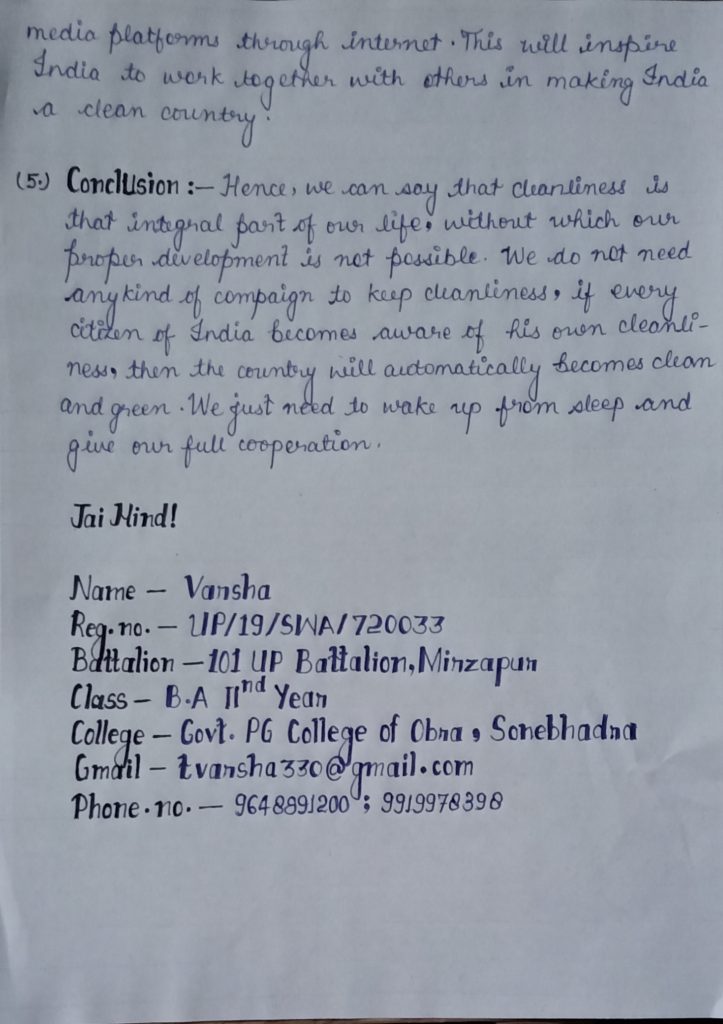 media platforms through internet. This will inspire
India to work together with others in making India
a clean country.
(5.) Conclusion :- Hence, we can say that cleanliness is
that integral part of our life, without which our
proper development is not possible. We do not need
anykind of compaign to keep cleanliness, if every
citizen of India becomes aware of his own cleanli-
ness, then the country will automatically becomes clean
and green. We just need to wake up from sleep and
give our full cooperation.
Jai Hind!
Name - Vansha
Reg. no. - UP/19/SWA/720033
Battalion - 101 UP Battalion, Mirzapur
Class - B.A IInd Year
College - Govt. PG College of Obra, Sonebhadra
Gmail - tvansha330@gmail.com
Phone. no. - 9648891200 ; 9919978398